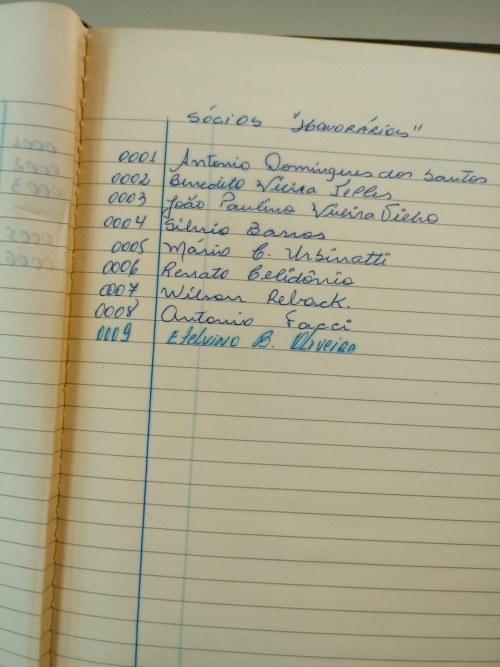 SÓCIOS "HONORÁRIOS"
0001 Antonio Domingues dos Santos
0002 Benedito Vieira Telles
0003 João Paulino Vieira Filho
0004 Silvio Barros
0005 Mário C. Urbinatti
0006 Renato Celidônio
0007 Wilson Reback.
0008 Antonio Facci
0009 Etelvino B. Oliveira